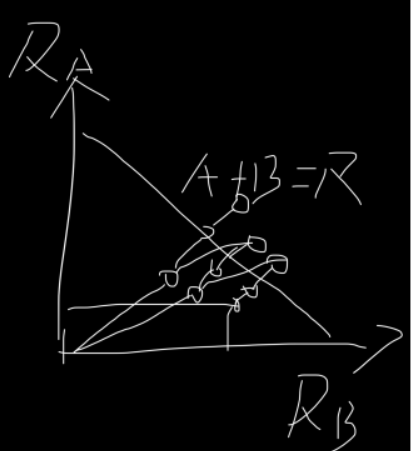 RA
A+B=R
RB